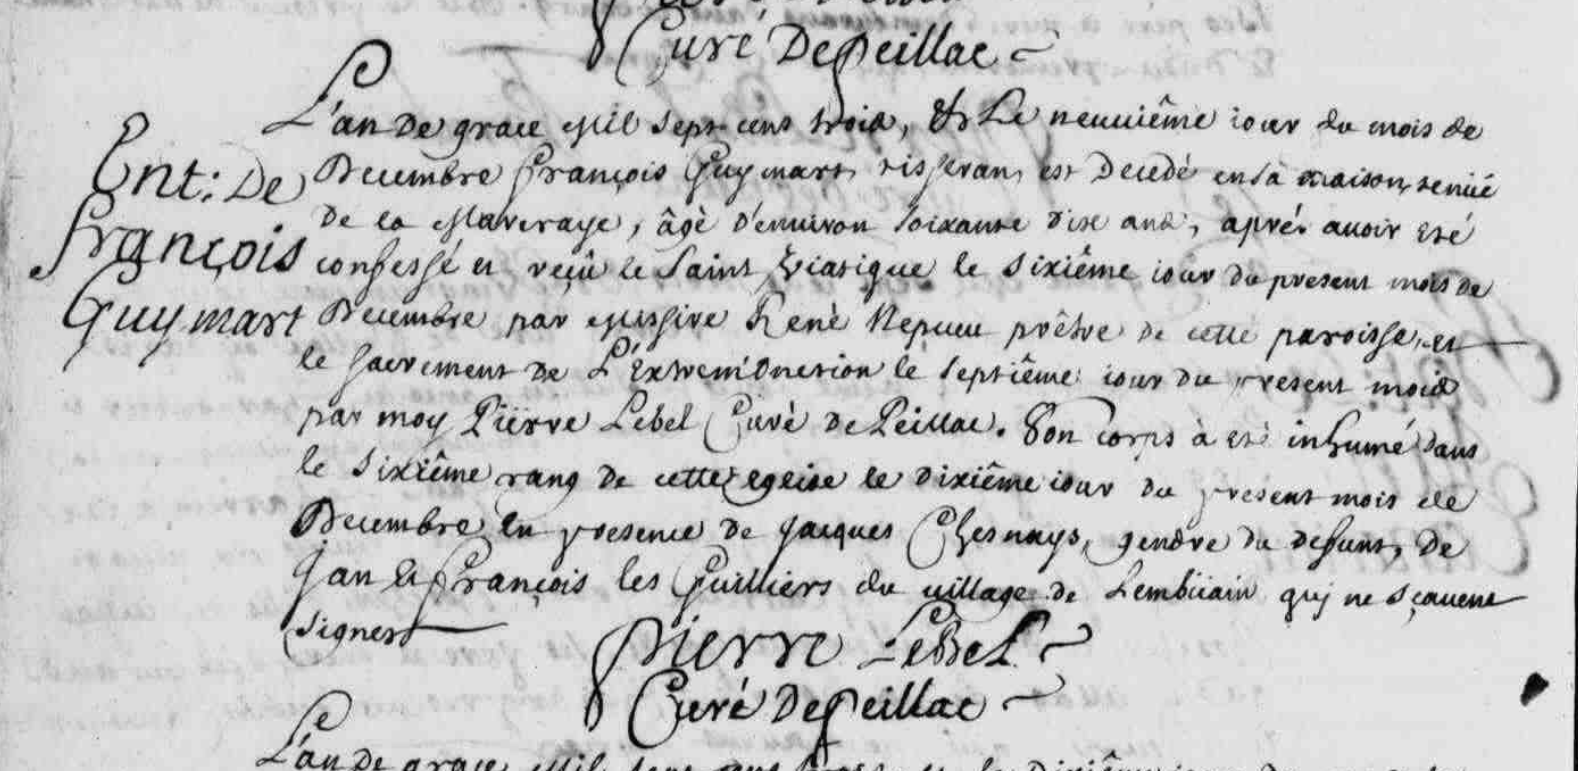 Curé De Peillac
L'an De grace Mil Sept cent trois, & Le neuuiême iour du mois de
Ent: De
Decembre François Guymart, tisseran, est Decedé en sa maison, tenüe
de la Mareraye, âgé d'enuiron soixante dix ans, aprés auoir esté
François
confessé et reçû le Saint Viatique le sixiême iour du present mois de
Guymart
Decembre par Missire René Nepueu prêtre de cette paroisse, et
le sacrement de L'Extrem'Onction le septiême iour du present mois
par moy Piërre Lebel Curé de Peillac. Son corps à esté inhumé dans
le sixiême rang de cette eglise le dixiême iour du present mois de
Decembre en presence de Jacques Chesnays, gendre du defunt, de
Jan & François les Guilliers du village de qui ne sçauent
signer
Pierre LeBel
Curé De Peillac
L'an De grace Mil Sept cent trois & le Dixiême iour du